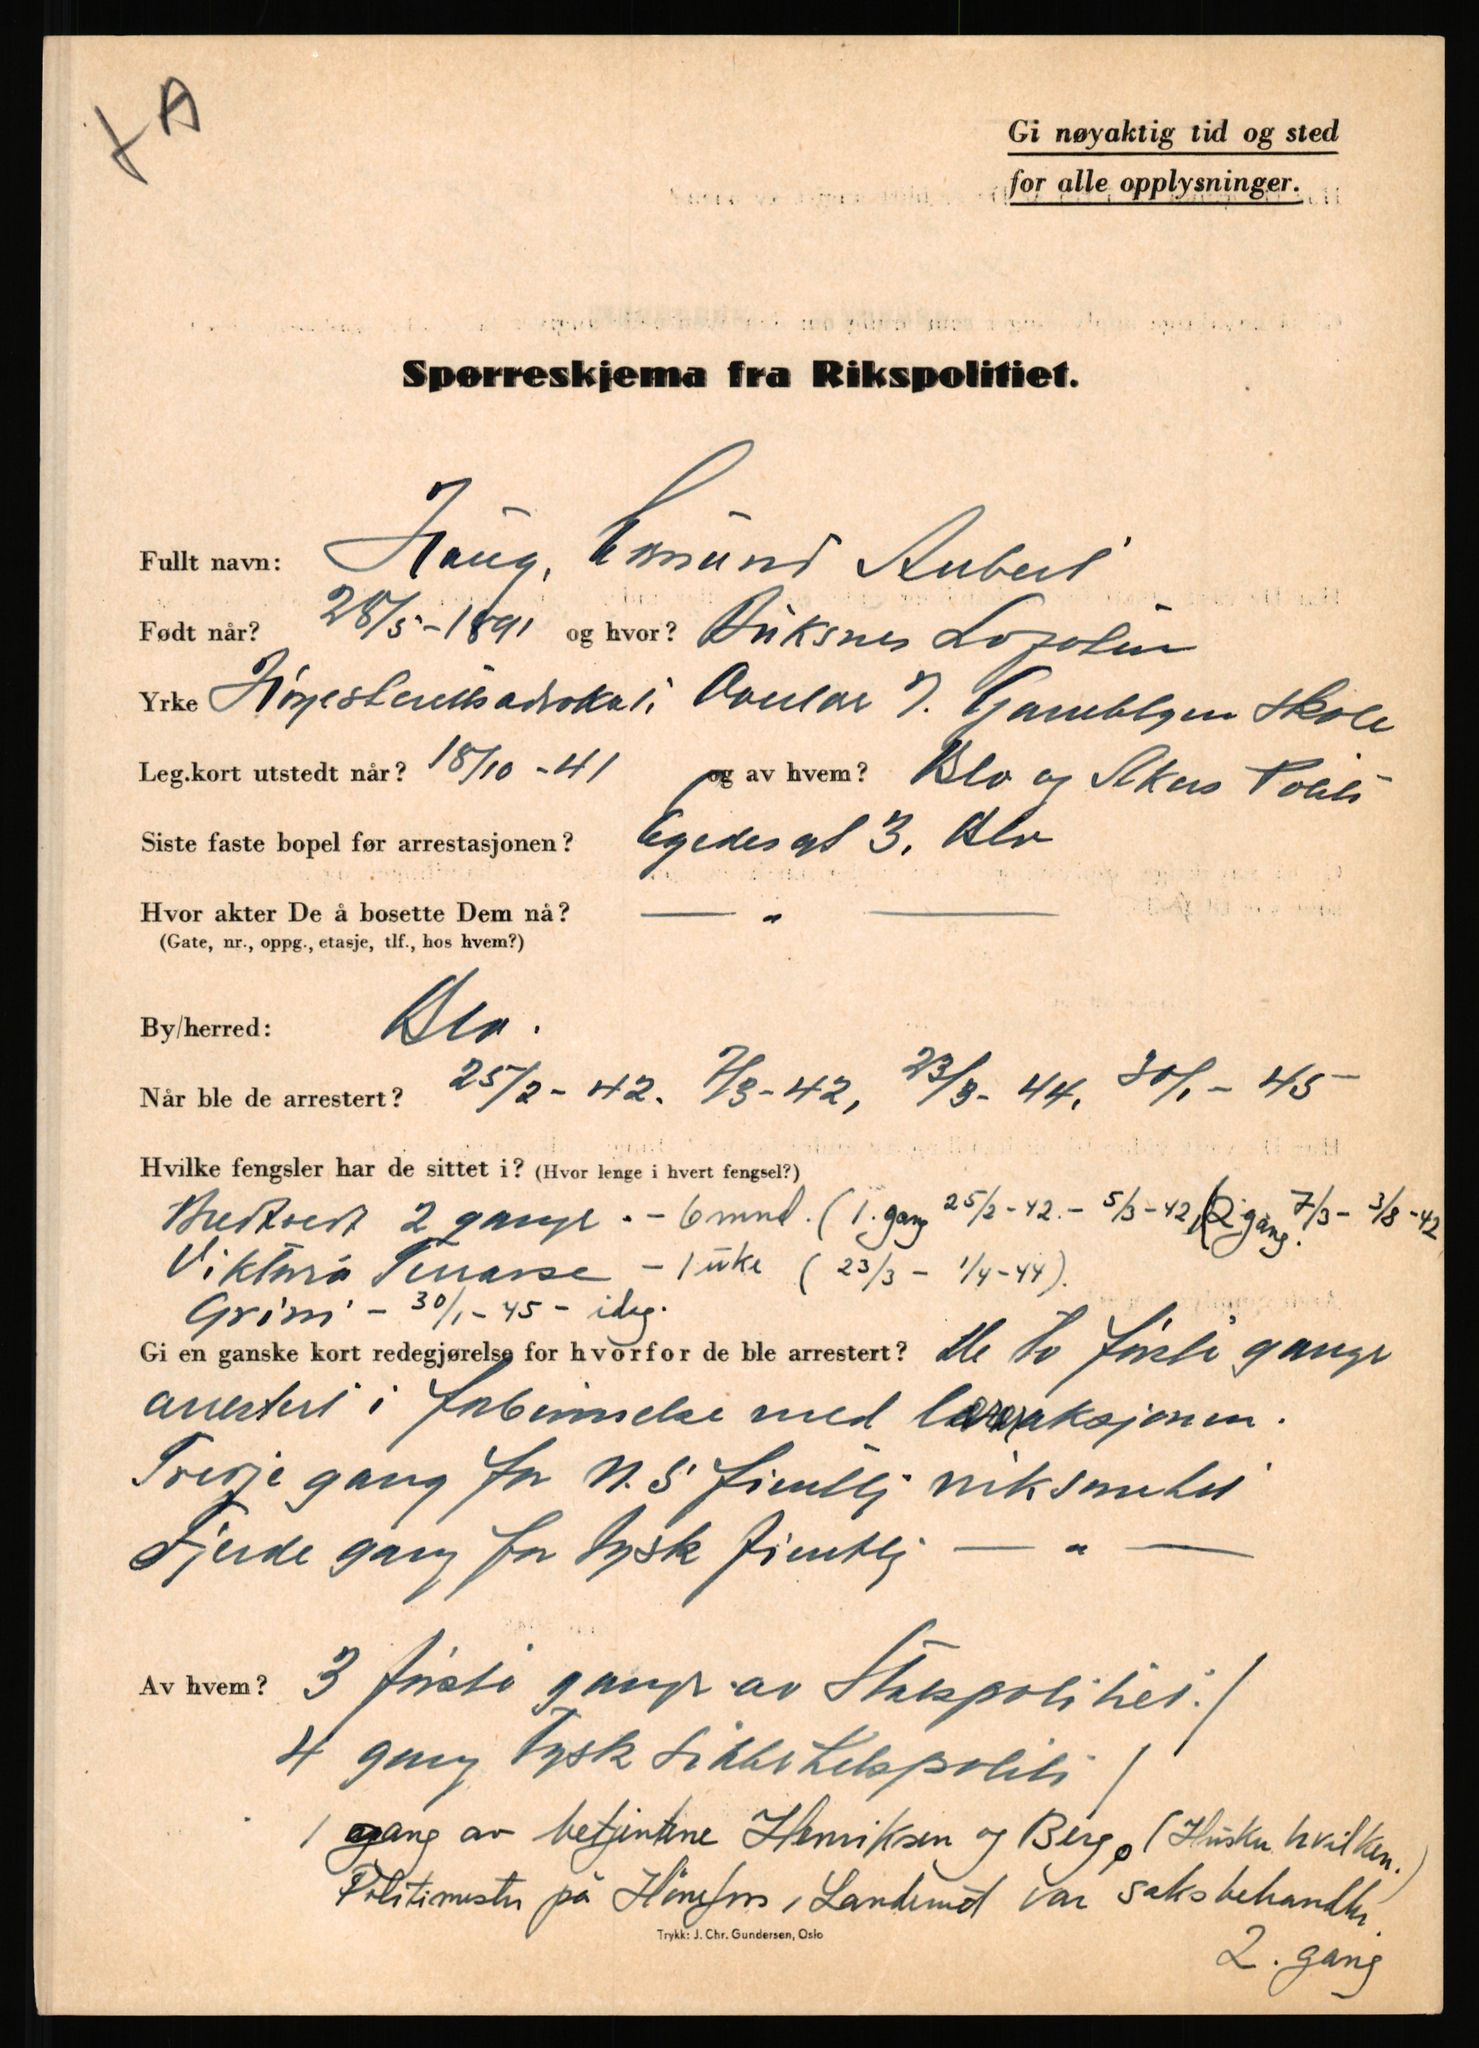 LA
Gi nøyaktig tid og sted
for alle opplysninger.
Spørreskjema fra Rikspolitiet.
Fullt navn: Haug, Edmund Aubert
Født når? 28/5-1891 og hvor? Buksnes Lofoten
Yrke Høyesterettsadvokat, Gamlebyen Skole
Leg.kort utstedt når? 18/10-41 og av hvem? Oslo og Akers Politi
Siste faste bopel før arrestasjonen? Egedes gt 3, Oslo
Hvor akter De å bosette Dem nå? — " —
(Gate, nr., oppg., etasje, tlf., hos hvem?)
By/herred: Oslo.
Når ble de arrestert? 25/2-42. 7/3-42, 23/3-44, 30/1-45
Hvilke fengsler har de sittet i? (Hvor lenge i hvert fengsel?)
Bredtvedt 2 ganger. - 6 mnd. (1. gang 25/2-42.- 5/3-42, (2 gang. 7/3- 3/8-42
Viktoria Terrasse - 1 uke (23/3 - 1/4-44).
Grini - 30/1-45 - idag.
Gi en ganske kort redegjørelse for hvorfor de ble arrestert? De to første ganger
arrestert i forbinnelse med læreraksjonen.
Tredje gang for N.S fientlig virksomhet
Fjerde gang for tysk fientlig — " —
Av hvem? 3 første ganger av Statspolitiet. /
4 gang Tysk sikkerhetspoliti /
1 gang av betjentene Henriksen og Berg, (Husker hvilken.)
Politimester på Hönefoss, Landerud var saksbehandler
2. gang
Trykk: J. Chr. Gundersen, Oslo